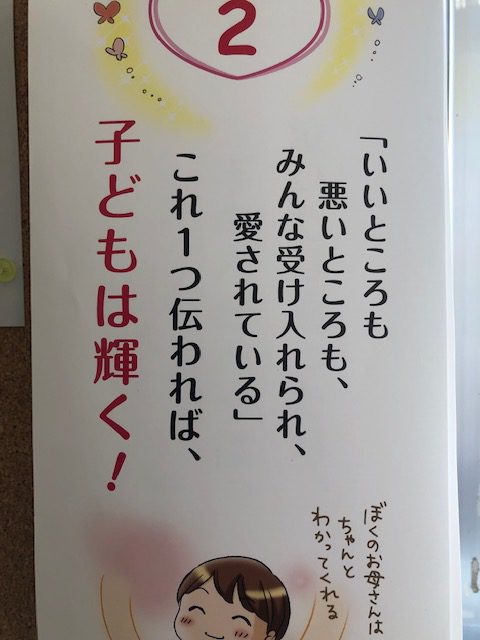 2
「いいところも
悪いところも、
みんな受け入れられ、
愛されている」
これ1つ伝われば、
子どもは輝く！
ぼくのお母さんは
ちゃんと
わかってくれる